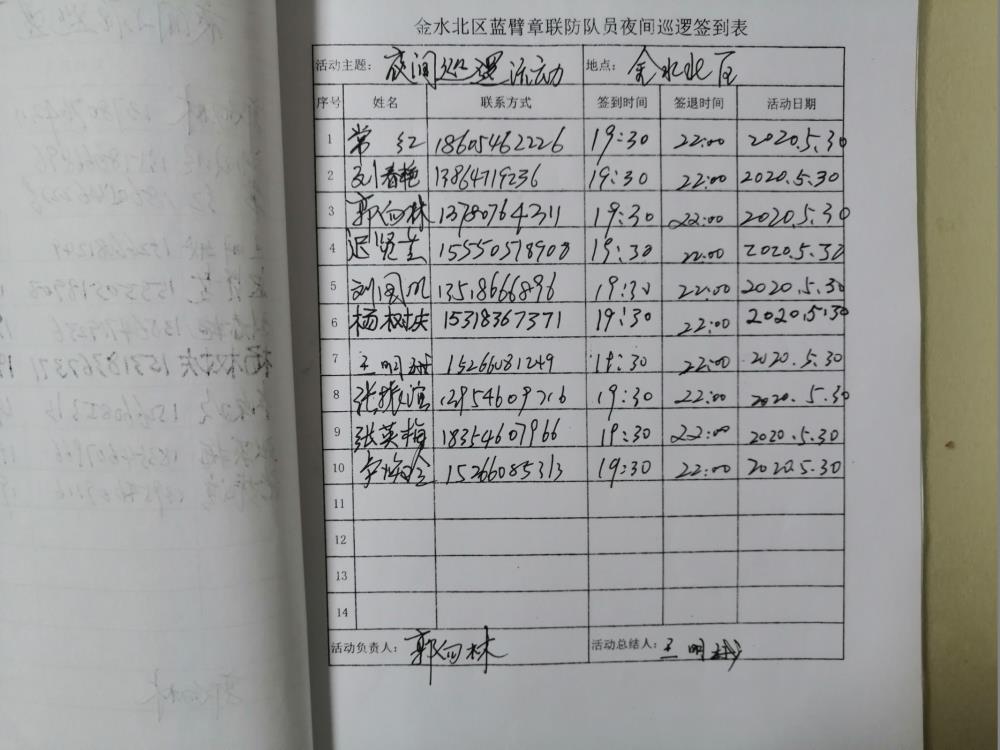 金水北区蓝臂章联防队员夜间巡逻签到表
活动主题： 夜间巡逻活动 地点： 金水北区
序号 姓名 联系方式 签到时间 签退时间 活动日期
1 常红 18605462226 19:30 22:00 2020.5.30
2 刘春艳 13864719236 19:30 22:00 2020.5.30
3 郭向林 13780764311 19:30 22:00 2020.5.30
4 迟贤 15550578908 19:30 22:00 2020.5.30
5 刘国 13518666896 19:30 22:00 2020.5.30
6 杨树庆 15318367371 19:30 22:00 2020.5.30
7 王明 15266081249 19:30 22:00 2020.5.30
8 张振 12954609716 19:30 22:00 2020.5.30
9 张英梅 18354607966 19:30 22:00 2020.5.30
10 15266085313 19:30 22:00 2020.5.30
11
12
13
14
活动负责人： 郭向林 活动总结人： 王明